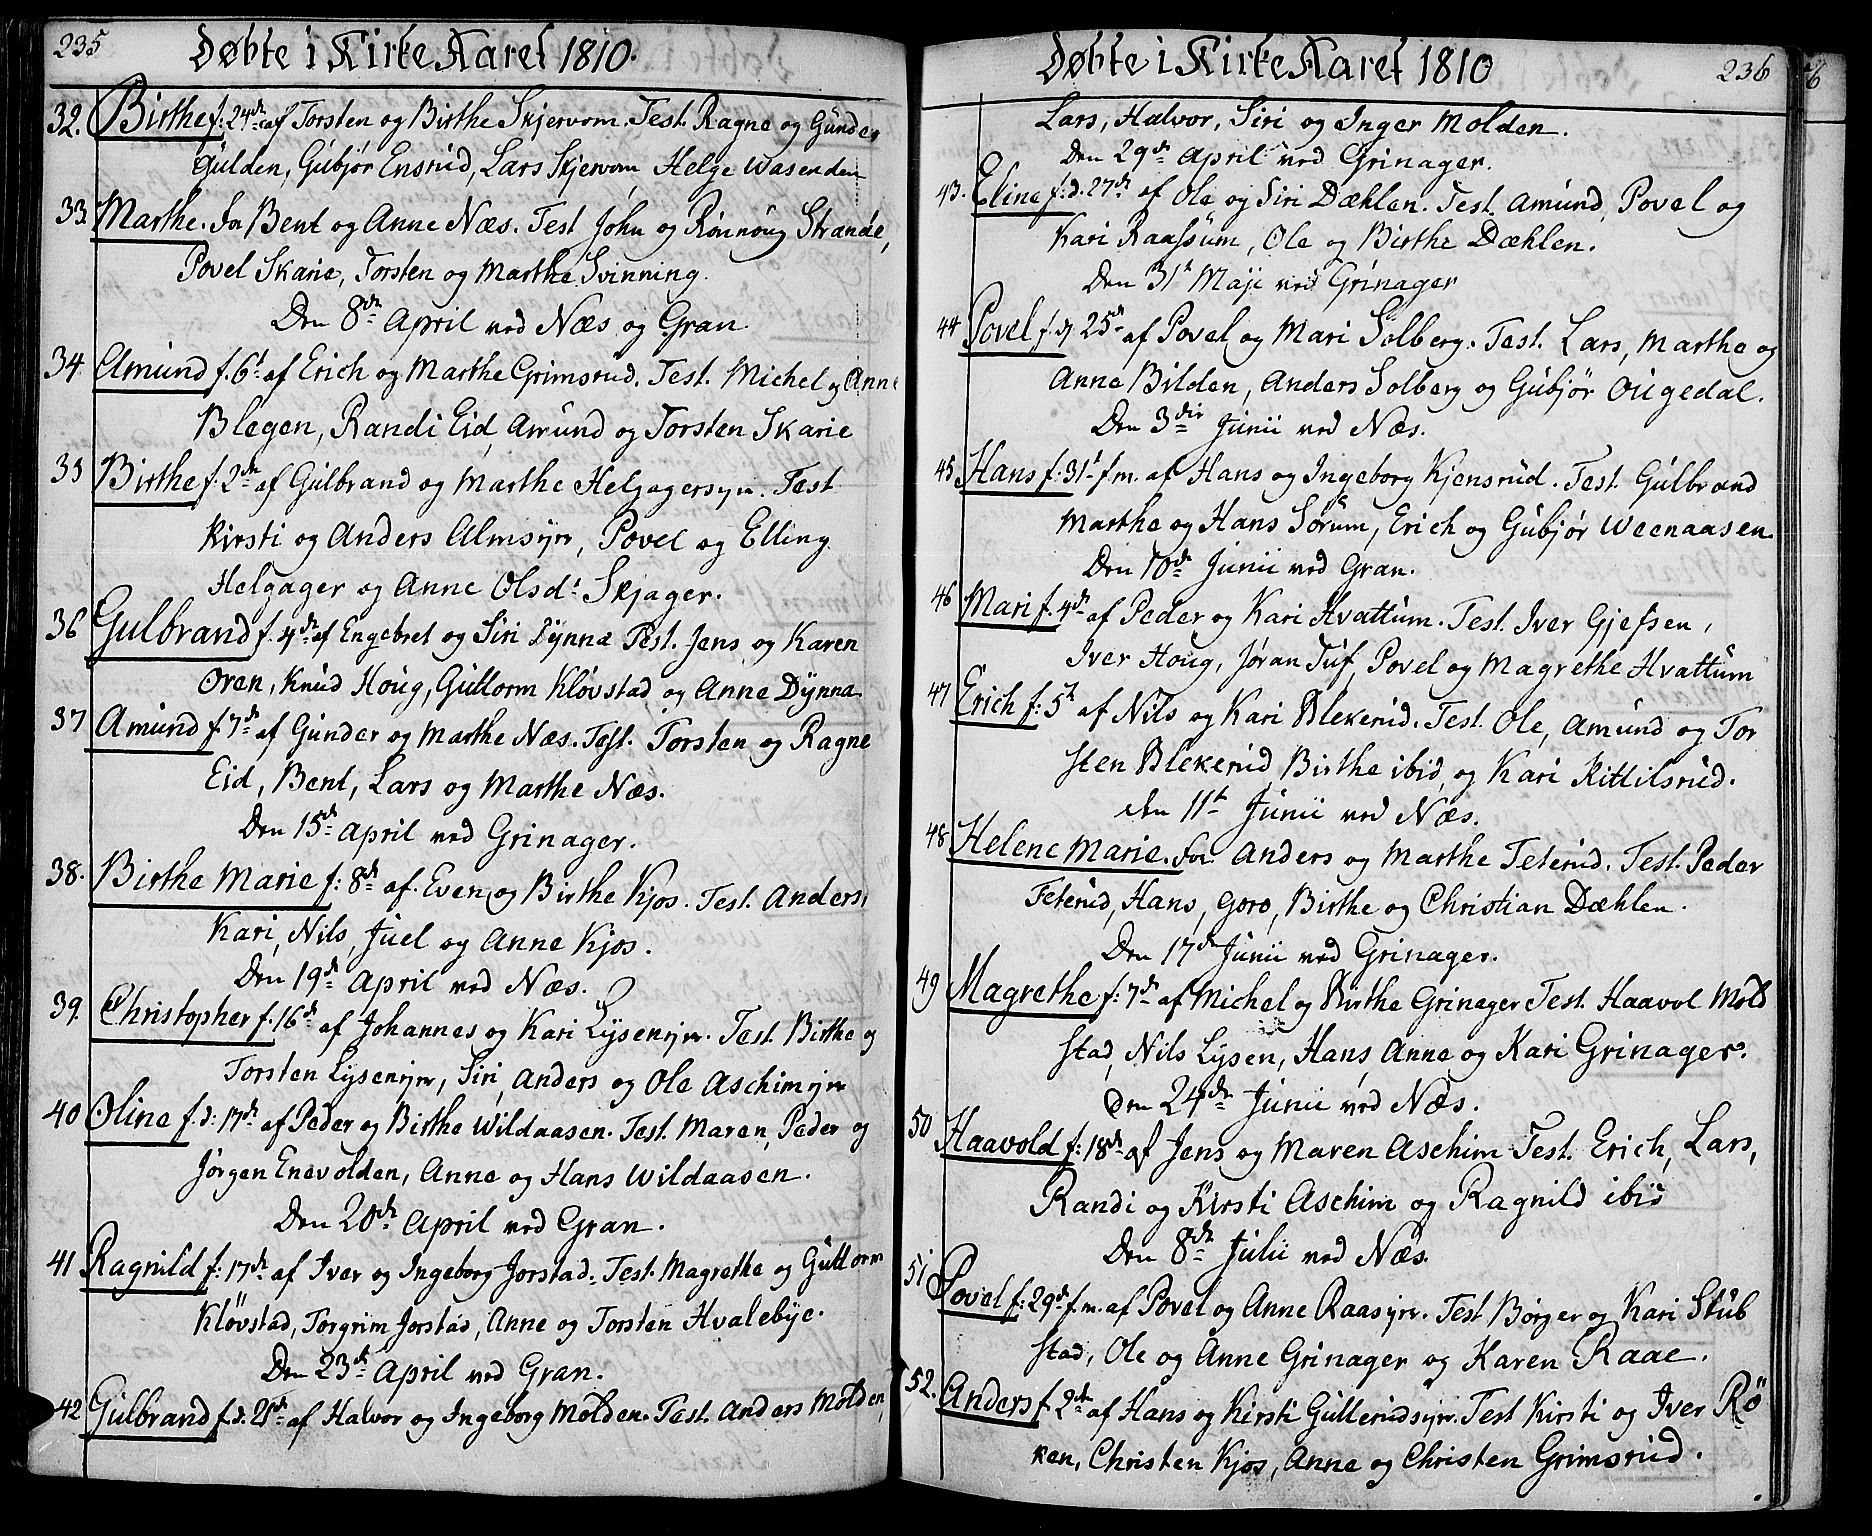 235
Døbte i Kirke Aaret 1810.
32. Birthe f: 24de af Torsten og Birthe Skjervom. Test. Ragne og Gunder
Gulden, Gubjør Ensrud, Lars Skjervom Helge Wasenden
33 Marthe. For Bent og Anne Næs. Test John og Rønnoug Strande,
Povel Skarie, Torsten og Marthe Svinning.
Den 8de April ved Næs og Gran
34 Amund f. 6t af Erich og Marthe Grimsrud. Test. Michel og Anne
Blegen, Randi Eid, Amund og Torsten Skarie
35 Birthe f. 2de af Gulbrand og Marthe Helgagersyn. Test
Kirsti og Anders Almsyn, Povel og Elling
Helgager og Anne Olsdt Skjager.
36 Gulbrand f. 4de af Engebret og Siri Dynna Test. Jens og Karen
Oren, Knud Houg, Guttorm Kløvstad og Anne Dynna
37 Amund f. 7de af Gunder og Marthe Næs. Test. Torsten og Ragne
Eid, Bent, Lars og Marthe Næs.
Den 15de April ved Grinager.
38. Birthe Marie f: 8de af Even og Birthe Kjos. Test. Anders,
Kari, Nils, Juel og Anne Kjos.
Den 19de April ved Næs.
39. Christopher f. 16de af Johannes og Kari Lysenyn. Test Birthe og
Torsten Lysenyn, Siri, Anders og Ole Aschimyn
40 Oline f. d: 17de af Peder og Birthe Wildaasen. Test. Maren, Peder og
Jørgen Enevolden, Anne og Hans Wildaasen.
Den 20de April ved Gran.
41 Ragnild f: 17de af Iver og Ingeborg Jorstad. Test. Magrethe og Guttorm
Kløvstad, Torgrim Jorstad, Anne og Torsten Hvalebye.
Den 23de April ved Gran.
42 Gulbrand f. d. 21de af Halvor og Ingeborg Molden. Test. Anders Molden,
Døbte i Kirke Aaret 1810
236
Lars, Halvor, Siri og Inger Molden.
Den 29de April ved Grinager.
43. Eline f. d. 27de af Ole og Siri Dæhlen. Test. Amund, Povel og
Kari Raassum, Ole og Birthe Dæhlen.
Den 31t Maji ved Grinager
44 Povel f. d. 25de af Povel og Mari Solberg. Test. Lars, Marthe og
Anne Bilden, Anders Solberg og Gubjør Ougedal.
Den 3die Junii ved Næs.
45 Hans f. 31t f. m. af Hans og Ingeborg Kjensrud. Test. Gulbrand
Marthe og Hans Sørum, Erich og Gubjør Weenaasen.
Den 10de Junii ved Gran.
46 Mari f. 4de af Peder og Kari Hvattum. Test. Iver Gjefsen,
Iver Houg, Jøran Tuf, Povel og Magrethe Hvattum
47 Erich f: 5t af Nils og Kari Blekerud. Test. Ole, Amund og Tor
sten Blekerud Birthe ibid, og Kari Kittilsrud.
den 11t Junii ved Næs.
48 Helene Marie. For Anders og Marthe Teterud. Test. Peder
Teterud, Hans, Goro, Birthe og Christian Dæhlen.
Den 17de Junii ved Grinager.
49 Magrethe f: 7de af Michel og Birthe Grinager Test. Haavol Mold
stad, Nils Lysen, Hans, Anne og Kari Grinager.
Den 24de Junii ved Næs.
50 Haavold f: 18de af Jens og Maren Aschim Test. Erich, Lars,
Randi og Kirsti Aschim og Ragnild ibid
Den 8de Julii ved Næs.
51 Povel f: 29de f. m. af Povel og Anne Raasyn. Test Børger og Kari Stub
stad, Ole og Anne Grinager og Karen Raae.
52. Anders f. 2de af Hans og Kirsti Gullerudsyn. Test Kirsti og Iver Rø
ken, Christen Kjos, Anne og Christen Grimsrud.